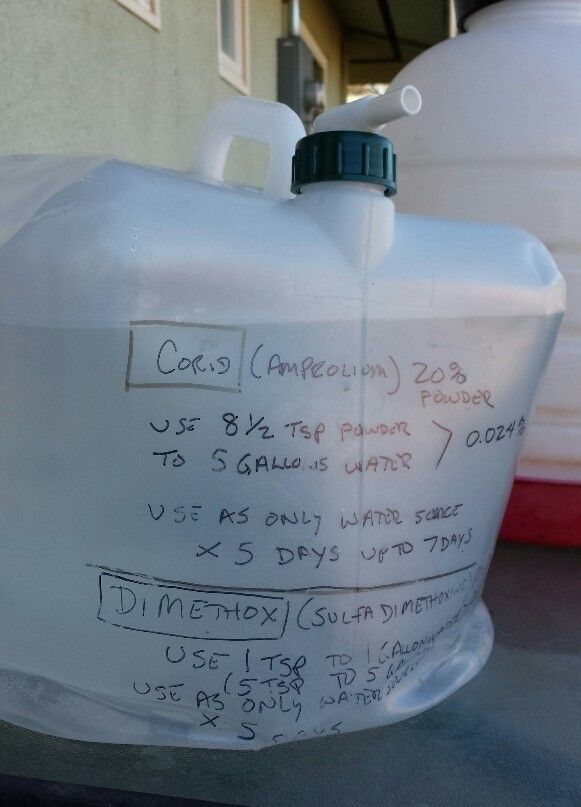 CORID (AMPROLIUM) 20%
POWDER
USE 8 1/2 TSP POWDER
TO 5 GALLONS WATER > 0.024%
USE AS ONLY WATER SOURCE
X 5 DAYS UP TO 7 DAYS
DIMETHOX (SULFADIMETHOXINE)
USE 1 TSP TO 1 GALLON WATER
(5 TSP TO 5 GAL
USE AS ONLY WATER SOURCE
X 5 DAYS